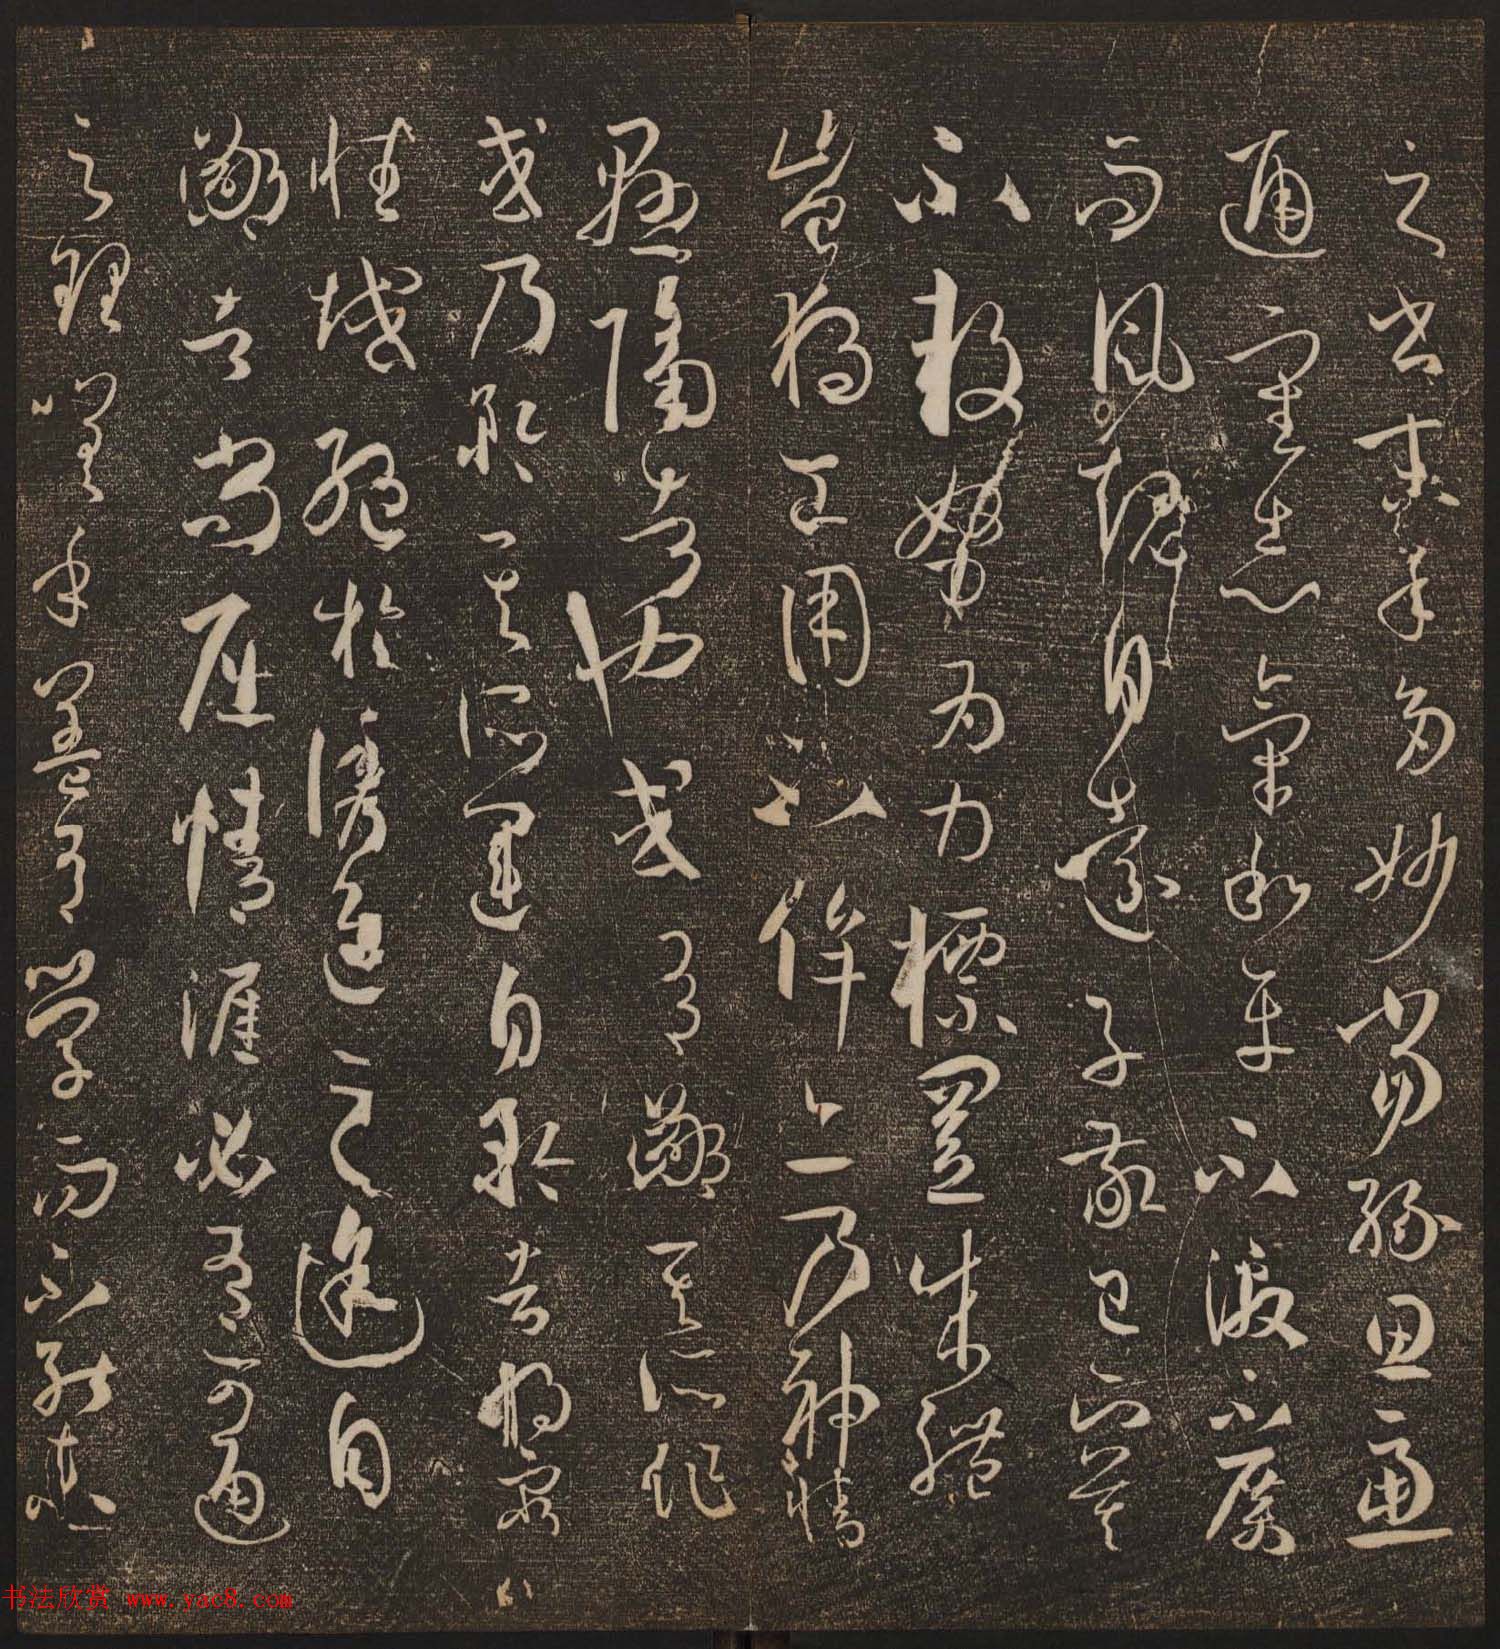 之書末年多妙當緣思慮
通審志氣和平不激不厲
而風規自遠子敬已下莫
不鼓努為力標置成體
豈獨工用不侔亦乃神情
懸隔者也或有鄙其所作
或乃矜其所運自矜者將窮
性域絕於誘進之途自
鄙者尚屈情涯必有可通
之理嗟乎蓋有學而不能未
书法欣赏 www.yac8.com